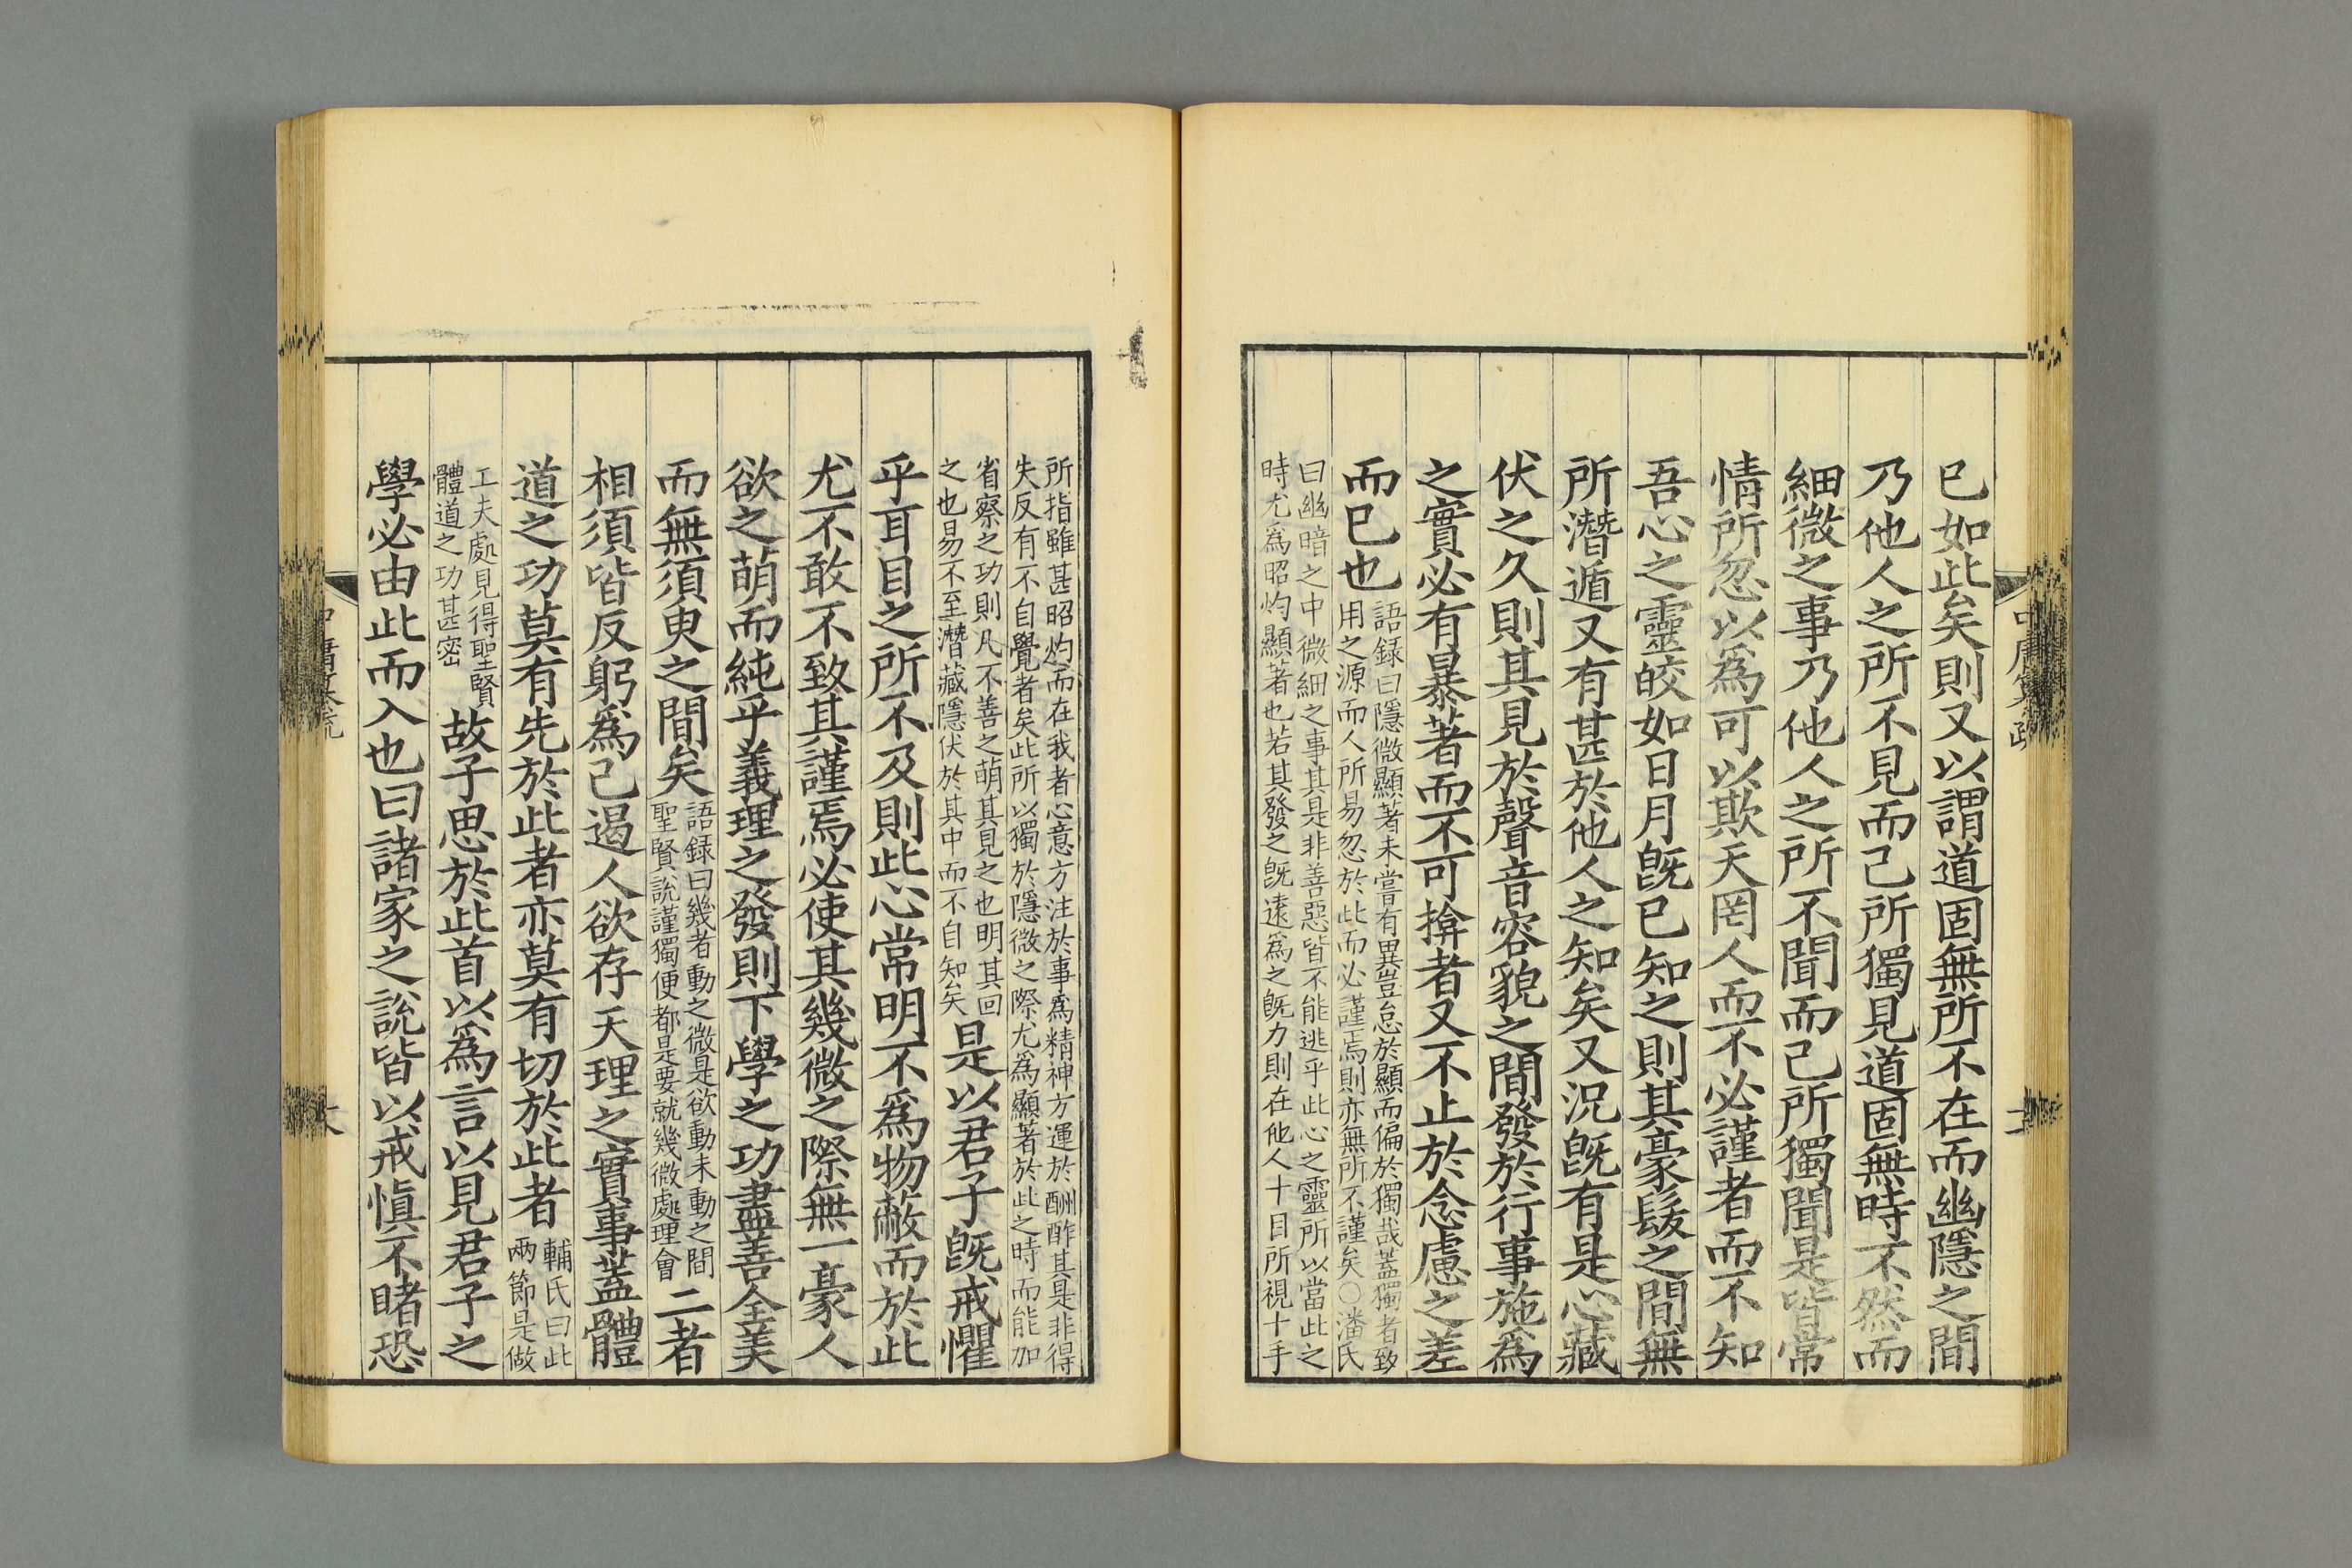 已如此矣則又以謂道固無所不在而幽隱之間
乃他人之所不見而己所獨見道固無時不然而
細微之事乃他人之所不聞而己所獨聞是皆常
情所忽以為可以欺天罔人而不必謹者而不知
吾心之靈皎如日月旣已知之則其豪髮之間無
所潛遁又有甚於他人之知矣又況旣有是心藏
伏之久則其見於聲音容貌之間發於行事施為
之實必有暴著而不可揜者又不止於念慮之差
而已也
語録曰隱微顯著未嘗有異豈怠於顯而偏於獨哉蓋獨者致
用之源而人所易忽於此而必謹焉則亦無所不謹矣〇潘氏
曰幽暗之中微細之事其是非善惡皆不能逃乎此心之靈所以當此之
時尤爲昭灼顯著也若其發之旣遠爲之旣力則在他人十目所視十手
所指雖甚昭灼而在我者心意方注於事爲精神方運於酬酢其是非得
失反有不自覺者矣此所以獨於隱微之際尤爲顯著於此之時而能加
省察之功則凡不善之萌其見之也明其回
之也易不至潛藏隱伏於其中而不自知矣
是以君子旣戒懼
乎耳目之所不及則此心常明不爲物蔽而於此
尤不敢不致其謹焉必使其幾微之際無一豪人
欲之萌而純乎義理之發則下學之功盡善全美
而無須臾之間矣
語録曰幾者動之微是欲動未動之間
聖賢說謹獨便都是要就幾微處理會
二者
相須皆反躬爲己遏人欲存天理之實事蓋體
道之功莫有先於此者亦莫有切於此者
輔氏曰此
兩節是做
工夫處見得聖賢
體道之功甚密
故子思於此首以爲言以見君子之
學必由此而入也曰諸家之說皆以戒慎不睹恐